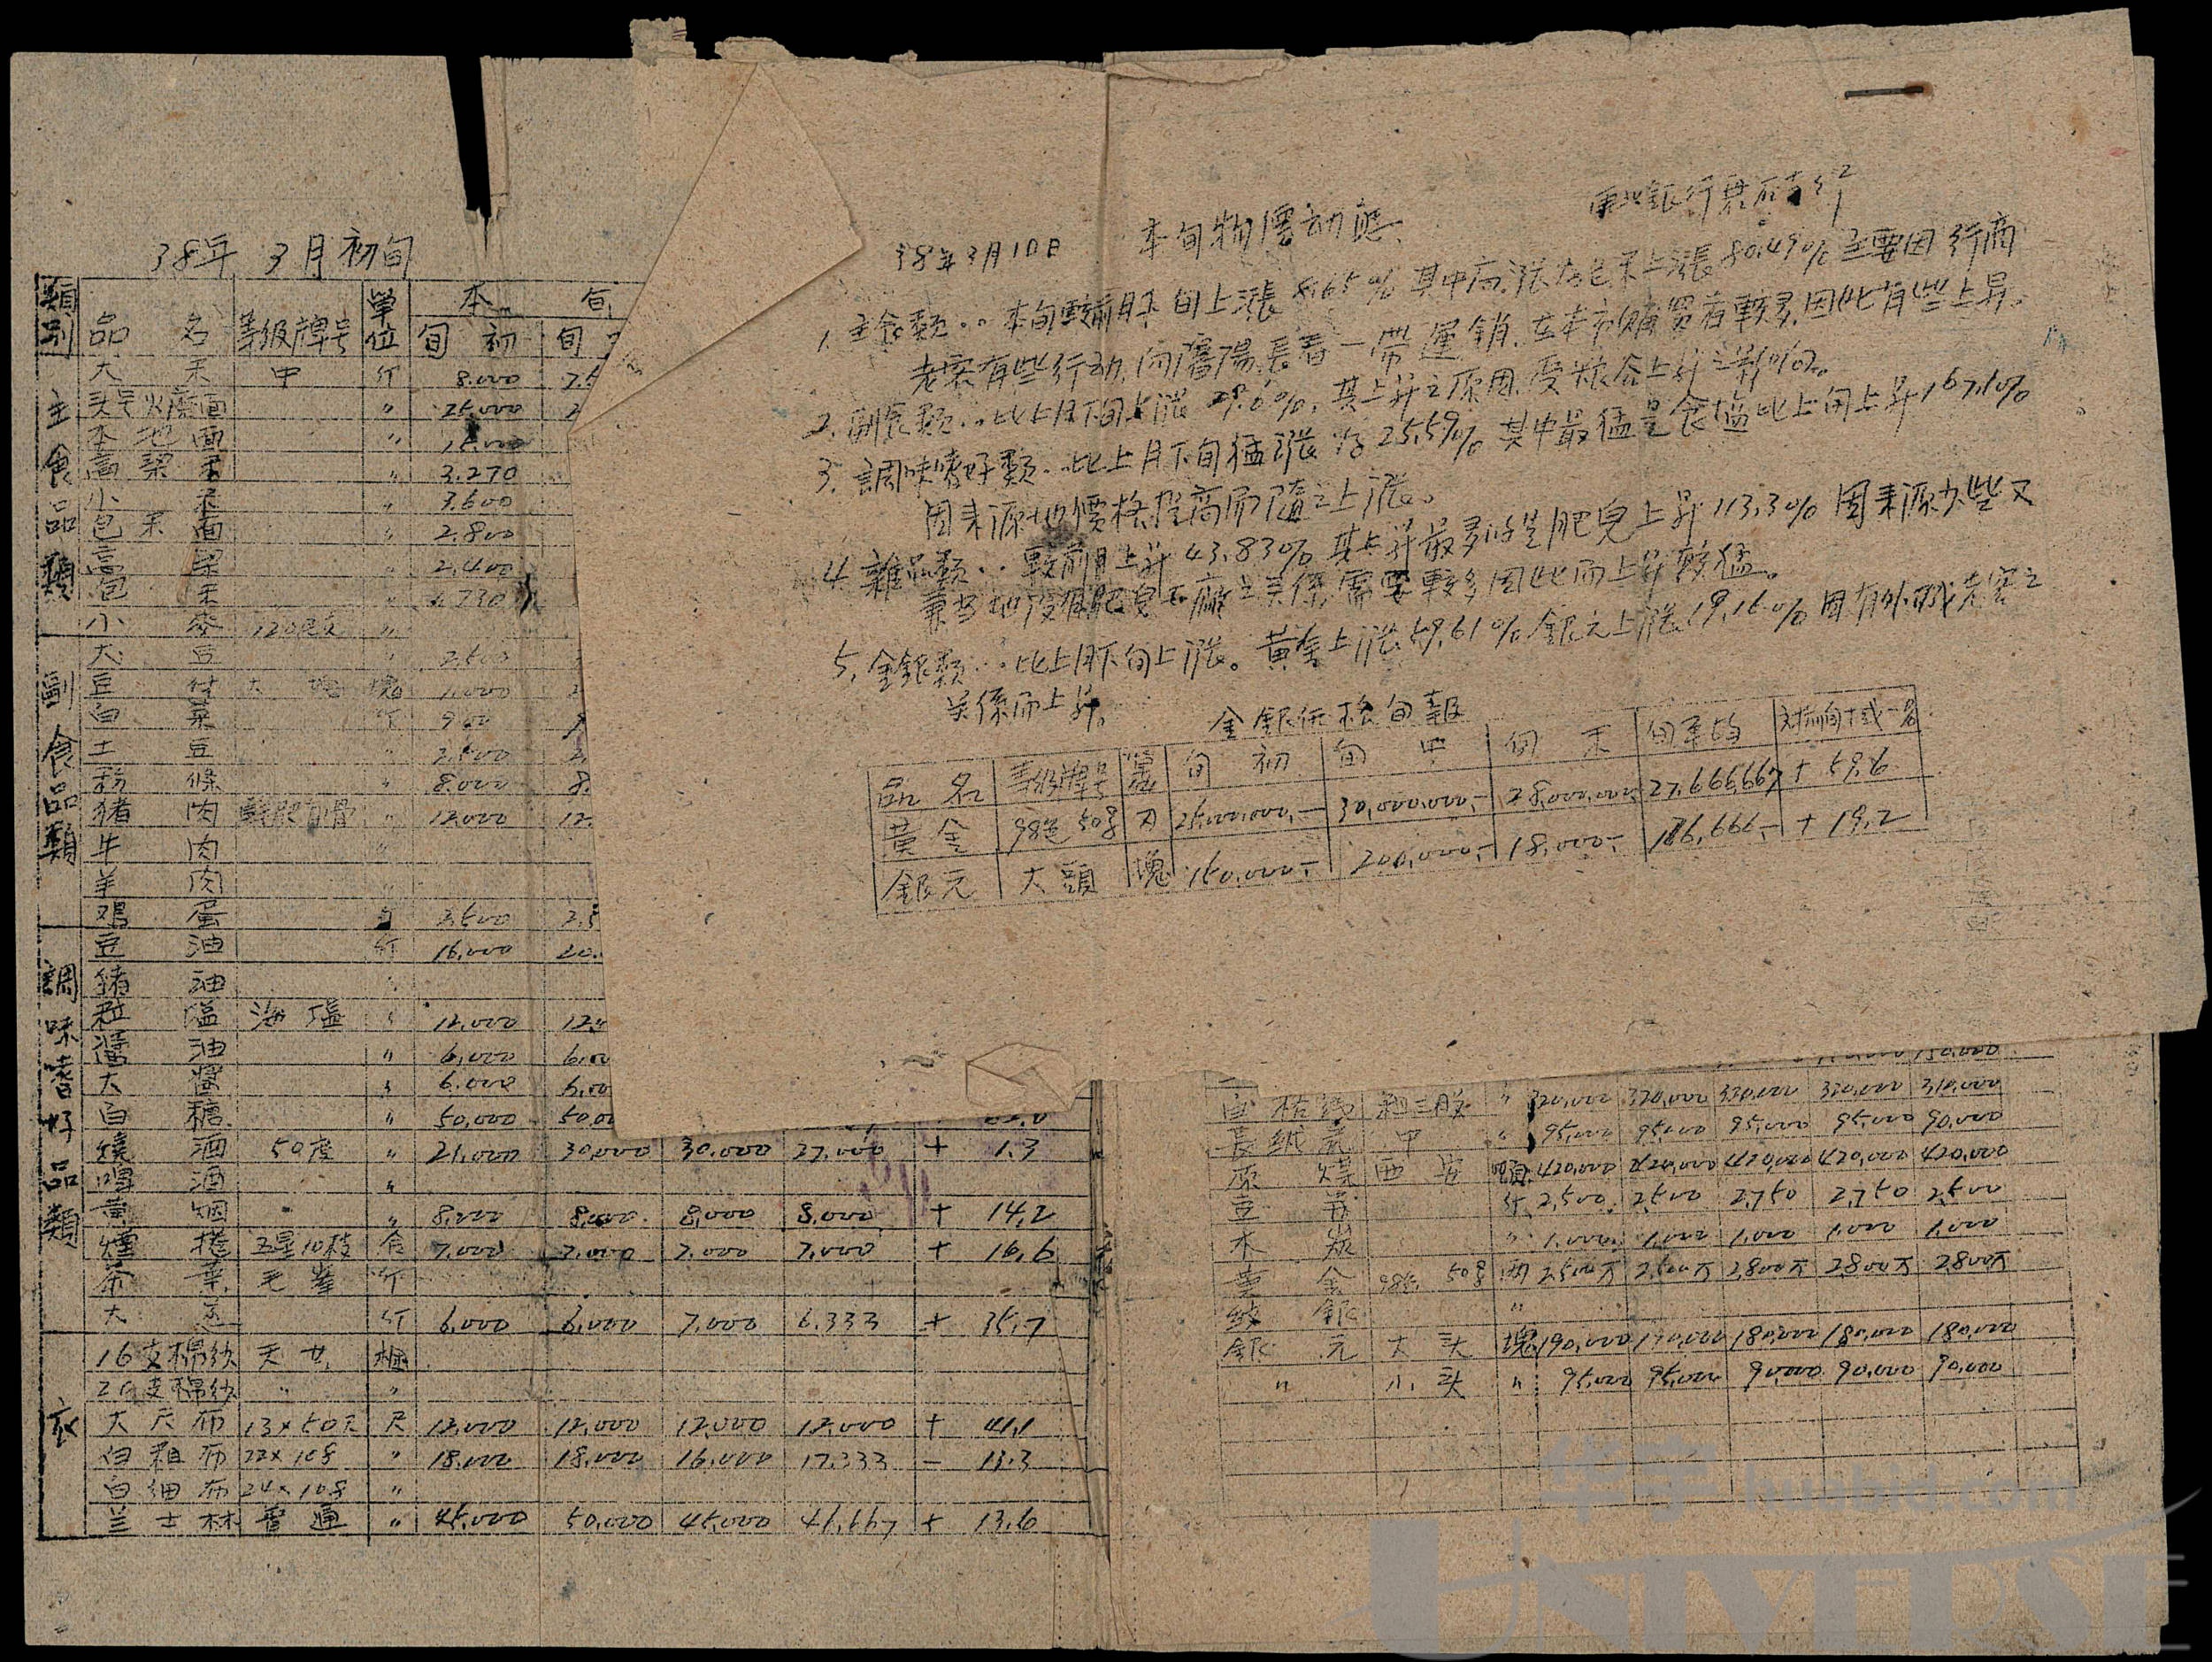 38年 3月 初旬
類別 品名 等级牌号 單位 本 旬
旬初 旬
主食品類
大米 中 斤 8.000 7.5
火磨面 〃 25.000
本地面 〃 15.000
高梁米 〃 3.270
小米 〃 3.600
包米面 〃 2.800
高梁 〃 2.400
包米 730
小麥 〃
副食品類
大豆 〃 2.500
豆付 大塊 塊 1.000
白菜 斤 900
土豆 〃 3.500
粉條 〃 8.000 8.
猪肉 〃 12.000 12.
牛肉 〃
羊肉 〃
鸡蛋 3.500 3.5
調味嗜好品類
豆油 斤 16.000 20.
猪油
粒塩 海塩 〃 12.000 12.
醬油 〃 6.000 6.00
大醬 〃 6.000 6.00
白糖 〃 50,000 50,00
燒酒 50度 〃 21.000 30,000 30.000 27.000 + 1.3
啤酒 〃
黄烟 〃 8.000 8.000 8,000 8.000 + 14.2
煙捲 五星10枝 合 7.000 7.000 7.000 7.000 + 16.6
茶葉 毛峯 斤
大 斤 6.000 6.000 7.000 6.333 + 35.7
衣
16支棉纱 天女 捆
20支棉纱 〃 〃
大尺布 13×50尺 尺 12.000 12.000 12.000 12.000 + 41.1
白粗布 22×108 〃 18.000 18.000 16.000 17.333 - 13.3
白细布 24×108 〃
兰士林 普通 〃 45.000 50.000 45.000 46.667 + 13.6
38年3月10日 本旬物價动態 銀行
1. 主食類.. 本旬較前月下旬上漲8.65% 其中高漲为包米上漲80.49% 主要因行商
老客有些行动,向瀋陽長春一帶運銷.在本市購買者較多.因此有些上昇。
2. 副食類.. 比上月下旬上漲29.6%, 其上昇之原因,受粮谷上升之影响。
3. 調味嗜好類.. 比上月下旬猛漲为25.59% 其中最猛是食塩比上旬上昇167.10%
因来源地價格提高而隨之上漲。
4. 雜品類.. 較前月上昇43.83% 其上昇最多的是肥皂上昇113.3% 因来源少些又
兼当地没有肥皂工廠之关係,需要較多因此而上昇較猛。
5. 金銀類.. 比上月下旬上漲。黄金上漲59.61% 銀元上漲19.16% 因有外城老客之
关係而上昇。
金銀行市旬報
品名 等级牌号 單位 旬初 旬中 旬末 旬平均 对前旬十或一%
黃金 98色 50g 刃 25,000,000.- 30,000,000.- 28,000,000. 27,666,667 + 59.6
銀元 大頭 塊 150,000.- 200,000.- 18,000.- 176,666.- + 19.2
150,000
320,000 320,000 330,000 330,000 310,000
甲 〃 95,000 95,000 95,000 95,000 90,000
原煤 西安 頓 420,000 420,000 420,000 420,000 420,000
豆 斤 2,500 2,500 2,750 2,750 2,500
木炭 〃 1,000 1,000 1,000 1,000 1,000
黄金 98色 50g 两 2,500万 2,500万 2,800万 2,800万 2,800万
纹銀 〃
銀元 大头 塊 190,000 190,000 180,000 180,000 180,000
〃 小头 〃 95,000 95,000 90,000 90,000 90,000
华宇 huabid.com